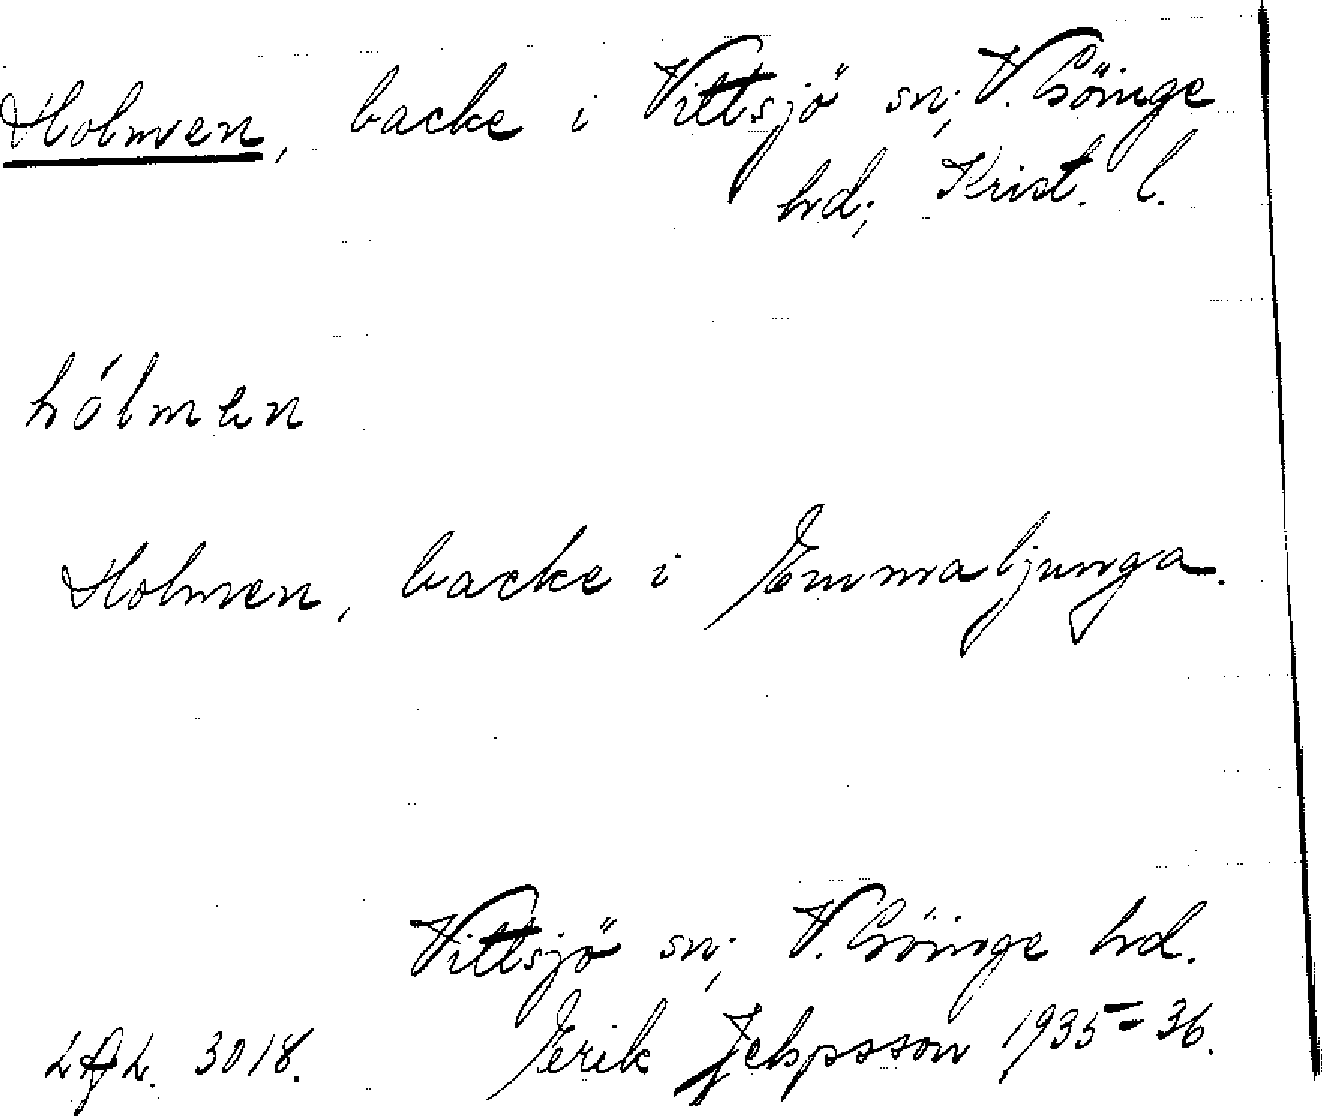 Holmen, backe i Vittsjö sn; V. Göinge
hd; Krist. l.
hólmen
Holmen, backe i Emmaljunga.
Vittsjö sn; V. Göinge hd.
3018. Erik Jeppsson 1935-36.